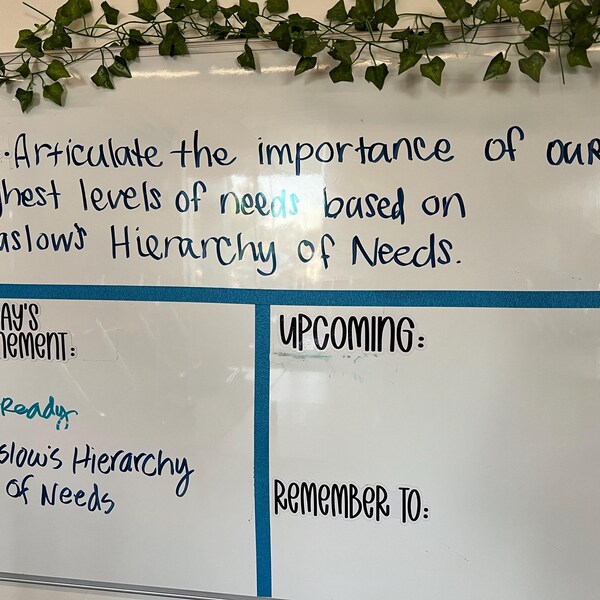 ·Articulate the importance of our
hest levels of needs based on
aslow's Hierarchy of Needs.
AY'S
NEMENT:
Ready
slow's Hierarchy
of Needs
UPCOMING:
REMEMBER TO: